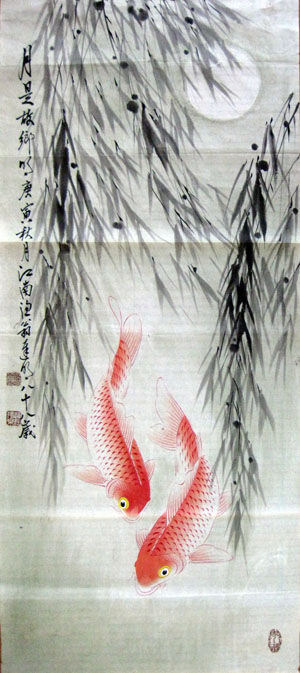 月是故鄉明庚寅秋月江南漁翁達明八十八歲